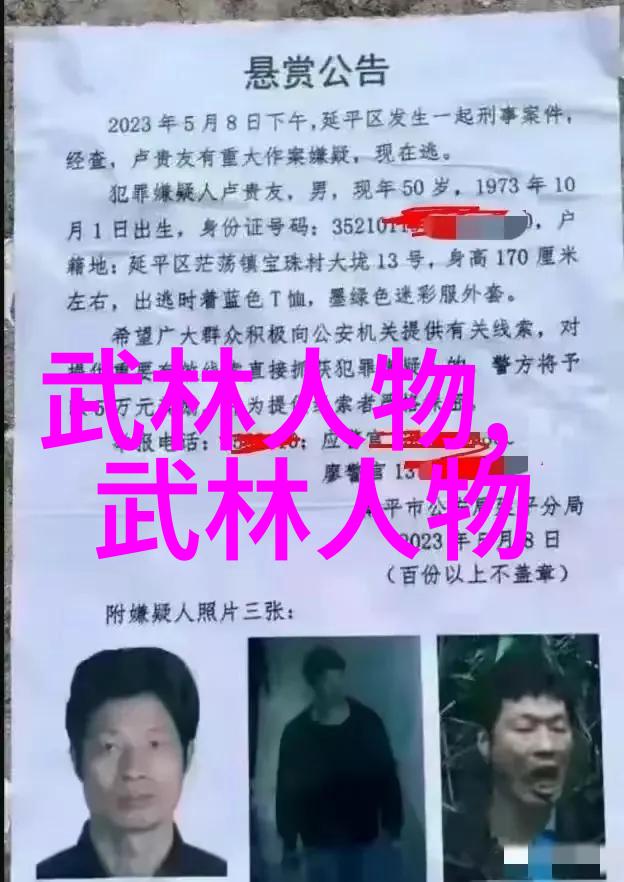 悬赏公告
2023年5月8日下午，延平区发生一起刑事案件，
经查，卢贵友有重大作案嫌疑，现在逃。
犯罪嫌疑人卢贵友，男，现年50岁，1973年10
月1日出生，身份证号码：3521011，户
籍地：延平区茫荡镇宝珠村大垅13号，身高170厘米
左右，出逃时着蓝色T恤，墨绿色迷彩服外套。
希望广大群众积极向公安机关提供有关线索，对
直接抓获犯罪 警方将予
5万元 为提供
武林人物，
举报电话： 应警官
廖警官13
武林人物
平市公安局延平分局
2023年5月8日
（百份以上不盖章）
附嫌疑人照片三张：